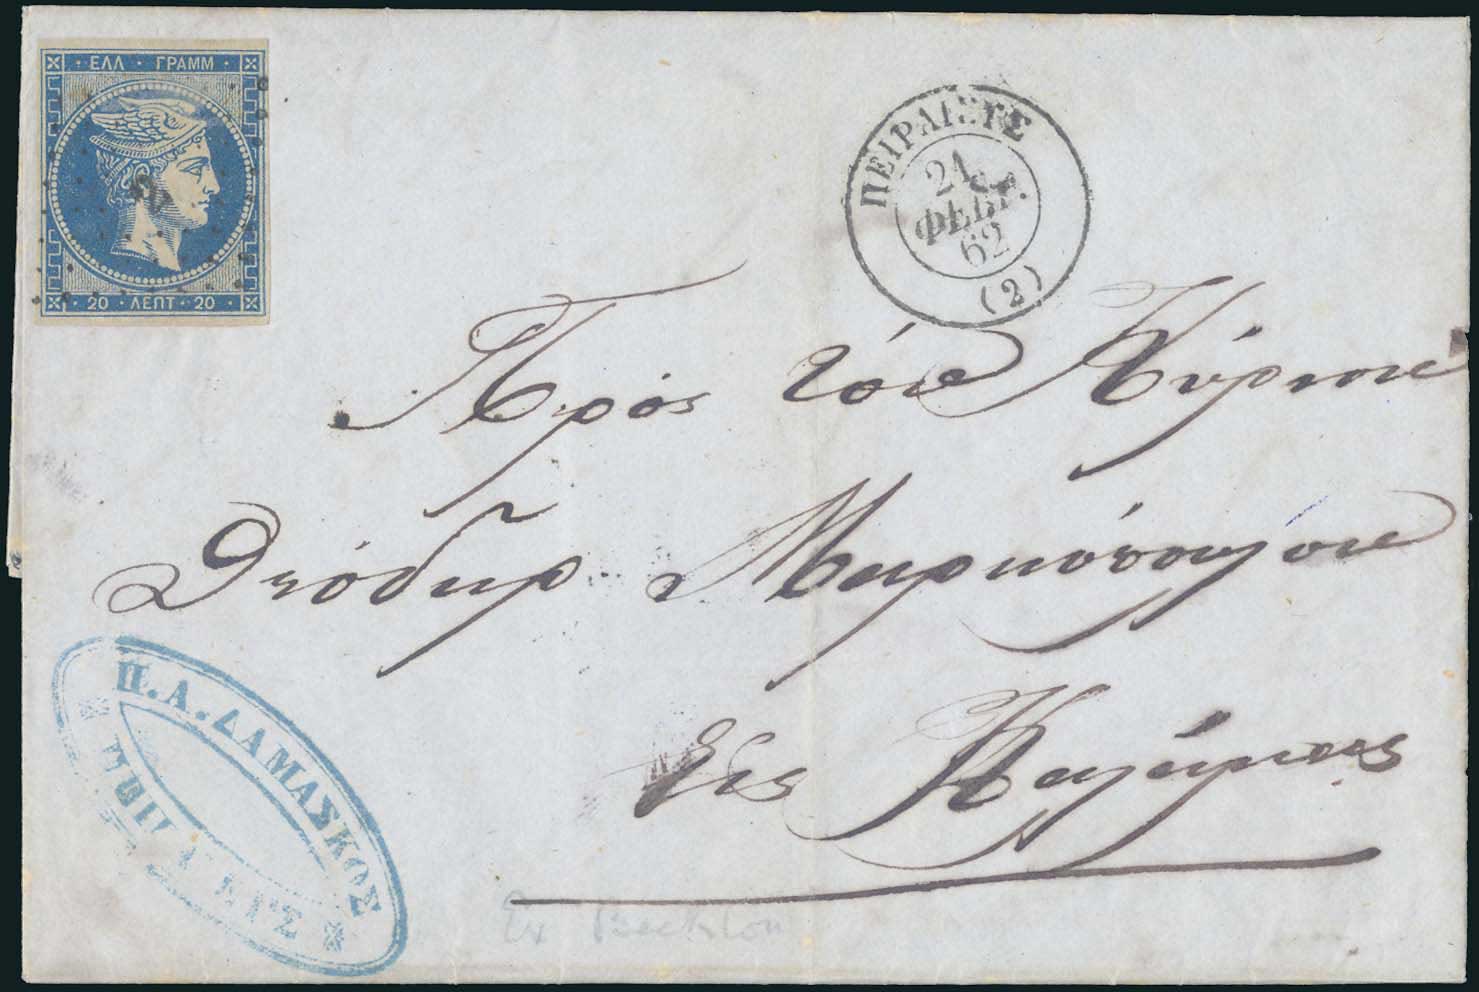 ΕΛΛ · ΓΡΑΜΜ
20 · ΛΕΠΤ · 20
ΠΕΙΡΑΙΕΥΣ
21
ΦΕΒΡ.
62
(2)
Πρὸς τὸν Κύριον
Θεόδωρ Μαρκόπουλον
Εἰς Καλάμας
Π. Α. ΔΑΜΑΣΚΟΣ
Ex Beckton